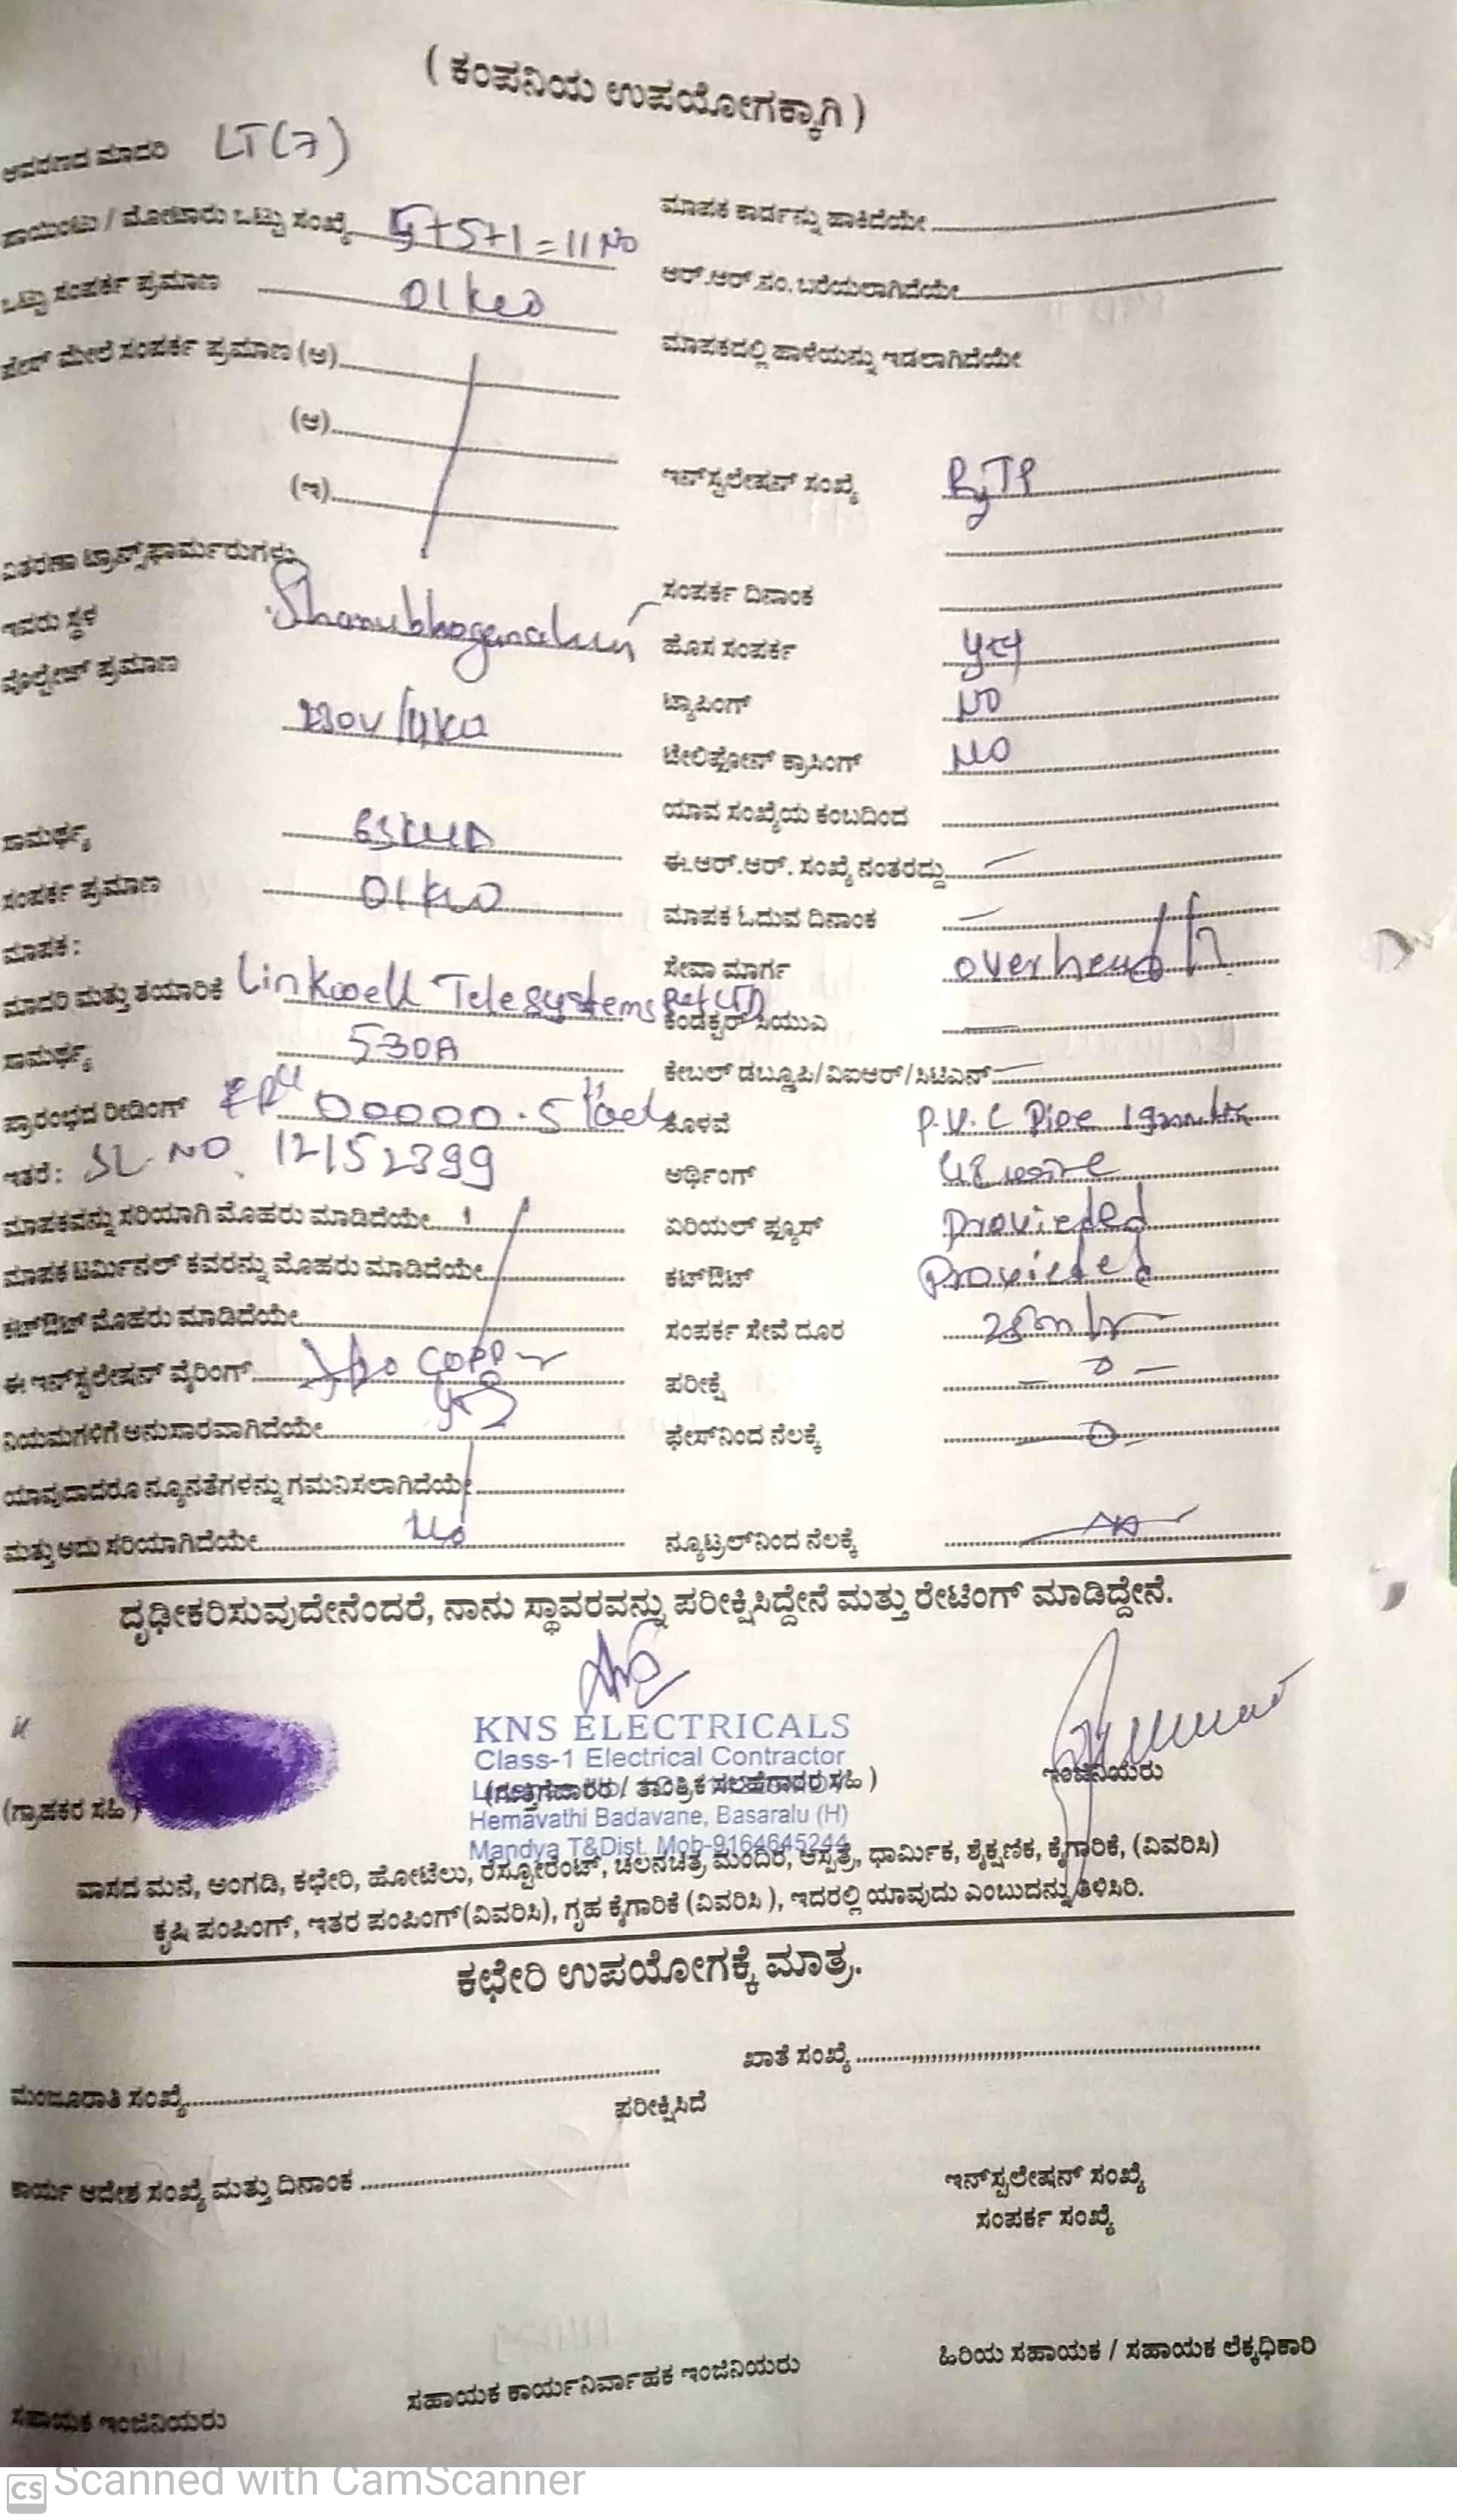 ( ಕಂಪನಿಯ ಉಪಯೋಗಕ್ಕಾಗಿ )
ಆವರಣದ ಮಾದರಿ LT(7)
ಪಾಯಿಂಟು / ಮೋಟಾರು ಒಟ್ಟು ಸಂಖ್ಯೆ 5+5+1=11 No
ಮಾಪಕ ಕಾರ್ಡನ್ನು ಹಾಕಿದೆಯೇ
ಒಟ್ಟು ಸಂಪರ್ಕ ಪ್ರಮಾಣ 01 kw
ಆರ್.ಆರ್.ನಂ. ಬರೆಯಲಾಗಿದೆಯೇ
ಫೇಸ್ ಮೇಲೆ ಸಂಪರ್ಕ ಪ್ರಮಾಣ (ಅ)
ಮಾಪಕದಲ್ಲಿ ಹಾಳೆಯನ್ನು ಇಡಲಾಗಿದೆಯೇ
(ಆ)
(ಇ)
ಇನ್‌ಸ್ಟಲೇಷನ್ ಸಂಖ್ಯೆ
ವಿತರಣಾ ಟ್ರಾನ್ಸ್‌ಫಾರ್ಮರುಗಳು
ಇವರು ಸ್ಥಳ
ಸಂಪರ್ಕ ದಿನಾಂಕ
ವೊಲ್ಟೇಜ್ ಪ್ರಮಾಣ
ಹೊಸ ಸಂಪರ್ಕ yes
230V
ಟ್ಯಾಪಿಂಗ್ NO
ಟೇಲಿಫೋನ್ ಕ್ರಾಸಿಂಗ್ NO
ಯಾವ ಸಂಖ್ಯೆಯ ಕಂಬದಿಂದ
ಸಾಮರ್ಥ್ಯ
ಈ.ಆರ್.ಆರ್. ಸಂಖ್ಯೆ ನಂತರದ್ದು
ಸಂಪರ್ಕ ಪ್ರಮಾಣ 01 kw
ಮಾಪಕ ಓದುವ ದಿನಾಂಕ
ಮಾಪಕ :
ಸೇವಾ ಮಾರ್ಗ overhead
ಮಾದರಿ ಮತ್ತು ತಯಾರಿಕೆ Linkwell Telesystems Pvt LTD
ಕಂಡಕ್ಟರ್ ಸಿಯುಎ
ಸಾಮರ್ಥ್ಯ 5-30A
ಕೇಬಲ್ ಡಬ್ಲ್ಯೂಪಿ/ವಿಐಆರ್/ಸಿಟಿಎನ್
ಪ್ರಾರಂಭದ ರೀಡಿಂಗ್ 00000.5
ಕೊಳವೆ P.V.C Pipe
ಇತರೆ : SL NO. 12152899
ಅರ್ಥಿಂಗ್ wire
ಮಾಪಕವನ್ನು ಸರಿಯಾಗಿ ಮೊಹರು ಮಾಡಿದೆಯೇ
ಏರಿಯಲ್ ಫ್ಯೂಸ್ Provieded
ಮಾಪಕ ಟರ್ಮಿನಲ್ ಕವರನ್ನು ಮೊಹರು ಮಾಡಿದೆಯೇ
ಕಟ್‌ಔಟ್ Provieded
ಕಟ್‌ಔಟ್ ಮೊಹರು ಮಾಡಿದೆಯೇ
ಸಂಪರ್ಕ ಸೇವೆ ದೂರ
ಈ ಇನ್‌ಸ್ಟಲೇಷನ್ ವೈರಿಂಗ್
ಪರೀಕ್ಷೆ
ನಿಯಮಗಳಿಗೆ ಅನುಸಾರವಾಗಿದೆಯೇ yes
ಫೇಸ್‌ನಿಂದ ನೆಲಕ್ಕೆ
ಯಾವುದಾದರೂ ನ್ಯೂನತೆಗಳನ್ನು ಗಮನಿಸಲಾಗಿದೆಯೇ
ಮತ್ತು ಅದು ಸರಿಯಾಗಿದೆಯೇ No
ನ್ಯೂಟ್ರಲ್‌ನಿಂದ ನೆಲಕ್ಕೆ
ದೃಢೀಕರಿಸುವುದೇನೆಂದರೆ, ನಾನು ಸ್ಥಾವರವನ್ನು ಪರೀಕ್ಷಿಸಿದ್ದೇನೆ ಮತ್ತು ರೇಟಿಂಗ್ ಮಾಡಿದ್ದೇನೆ.
KNS ELECTRICALS
Class-1 Electrical Contractor
(ಗುತ್ತಿಗೆದಾರರ / ತಾಂತ್ರಿಕ ಸಲಹೆಗಾರರ ಸಹಿ )
ಇಂಜಿನಿಯರು
(ಗ್ರಾಹಕರ ಸಹಿ )
Hemavathi Badavane, Basaralu (H)
Mandya T&Dist. Mob-9164645244
ವಾಸದ ಮನೆ, ಅಂಗಡಿ, ಕಛೇರಿ, ಹೋಟೆಲು, ರೆಸ್ಟೋರೆಂಟ್, ಚಲನಚಿತ್ರ ಮಂದಿರ, ಆಸ್ಪತ್ರೆ, ಧಾರ್ಮಿಕ, ಶೈಕ್ಷಣಿಕ, ಕೈಗಾರಿಕೆ, (ವಿವರಿಸಿ)
ಕೃಷಿ ಪಂಪಿಂಗ್, ಇತರ ಪಂಪಿಂಗ್(ವಿವರಿಸಿ), ಗೃಹ ಕೈಗಾರಿಕೆ (ವಿವರಿಸಿ ), ಇದರಲ್ಲಿ ಯಾವುದು ಎಂಬುದನ್ನು ತಿಳಿಸಿರಿ.
ಕಛೇರಿ ಉಪಯೋಗಕ್ಕೆ ಮಾತ್ರ.
ಮಂಜೂರಾತಿ ಸಂಖ್ಯೆ
ಖಾತೆ ಸಂಖ್ಯೆ
ಪರೀಕ್ಷಿಸಿದೆ
ಕಾರ್ಯ ಆದೇಶ ಸಂಖ್ಯೆ ಮತ್ತು ದಿನಾಂಕ
ಇನ್‌ಸ್ಟಲೇಷನ್ ಸಂಖ್ಯೆ
ಸಂಪರ್ಕ ಸಂಖ್ಯೆ
ಸಹಾಯಕ ಇಂಜಿನಿಯರು
ಸಹಾಯಕ ಕಾರ್ಯನಿರ್ವಾಹಕ ಇಂಜಿನಿಯರು
ಹಿರಿಯ ಸಹಾಯಕ / ಸಹಾಯಕ ಲೆಕ್ಕಧಿಕಾರಿ
CS Scanned with CamScanner